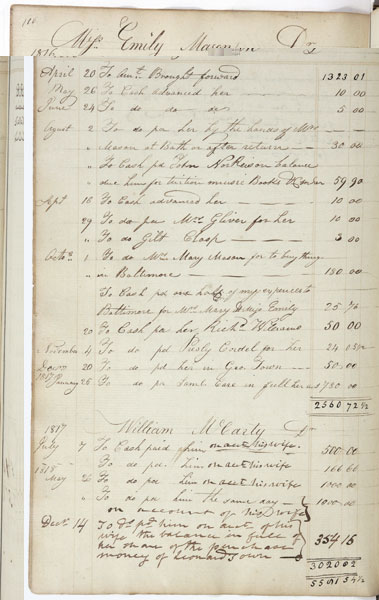 100
Mrs. Emily Dr
1816
April 20 To Amt. Brought forward 1323 01
May 26 To Cash advanced her 10 00
June 24 To do do do 5 00
August 2 To do per her by the hands of Mrs
Mason at Bath on after return 30 00
" To Cash pd John balance
due him for tuition music Books 59 90
Sept 18 To Cash advanced her 10 00
29 To do per Mrs for her 10 00
" To do Gilt 3 00
Octo. 1 To do Mrs Mary Mason for to buy things
in Baltimore 180 00
To Cash pd one half of my expences to
Baltimore for Mrs Mary & Miss Emily 25 76
20 To Cash pr her Richd Williams 50 00
November 4 To do pd for her 24 05½
Decm. 20 To do pd her in Geo. Town 50 00
1817 January 28 To do pr Saml. in full her 730 00
2560 72½
1817 William McCarty Dr
July 7 To Cash paid him on acct his wife 500 00
To do pd. him on acct his wife 166 60
1818
May 26 To do pr him on acct his wife 1000 00
" To do pr him the same day 1000 00
on account of his wife
Decr. 14 To Do. pd. him on acct. of his
wife the balance in full of
her share of the purchase
money of Leonard Town 354 15
3020 02
5591 54½